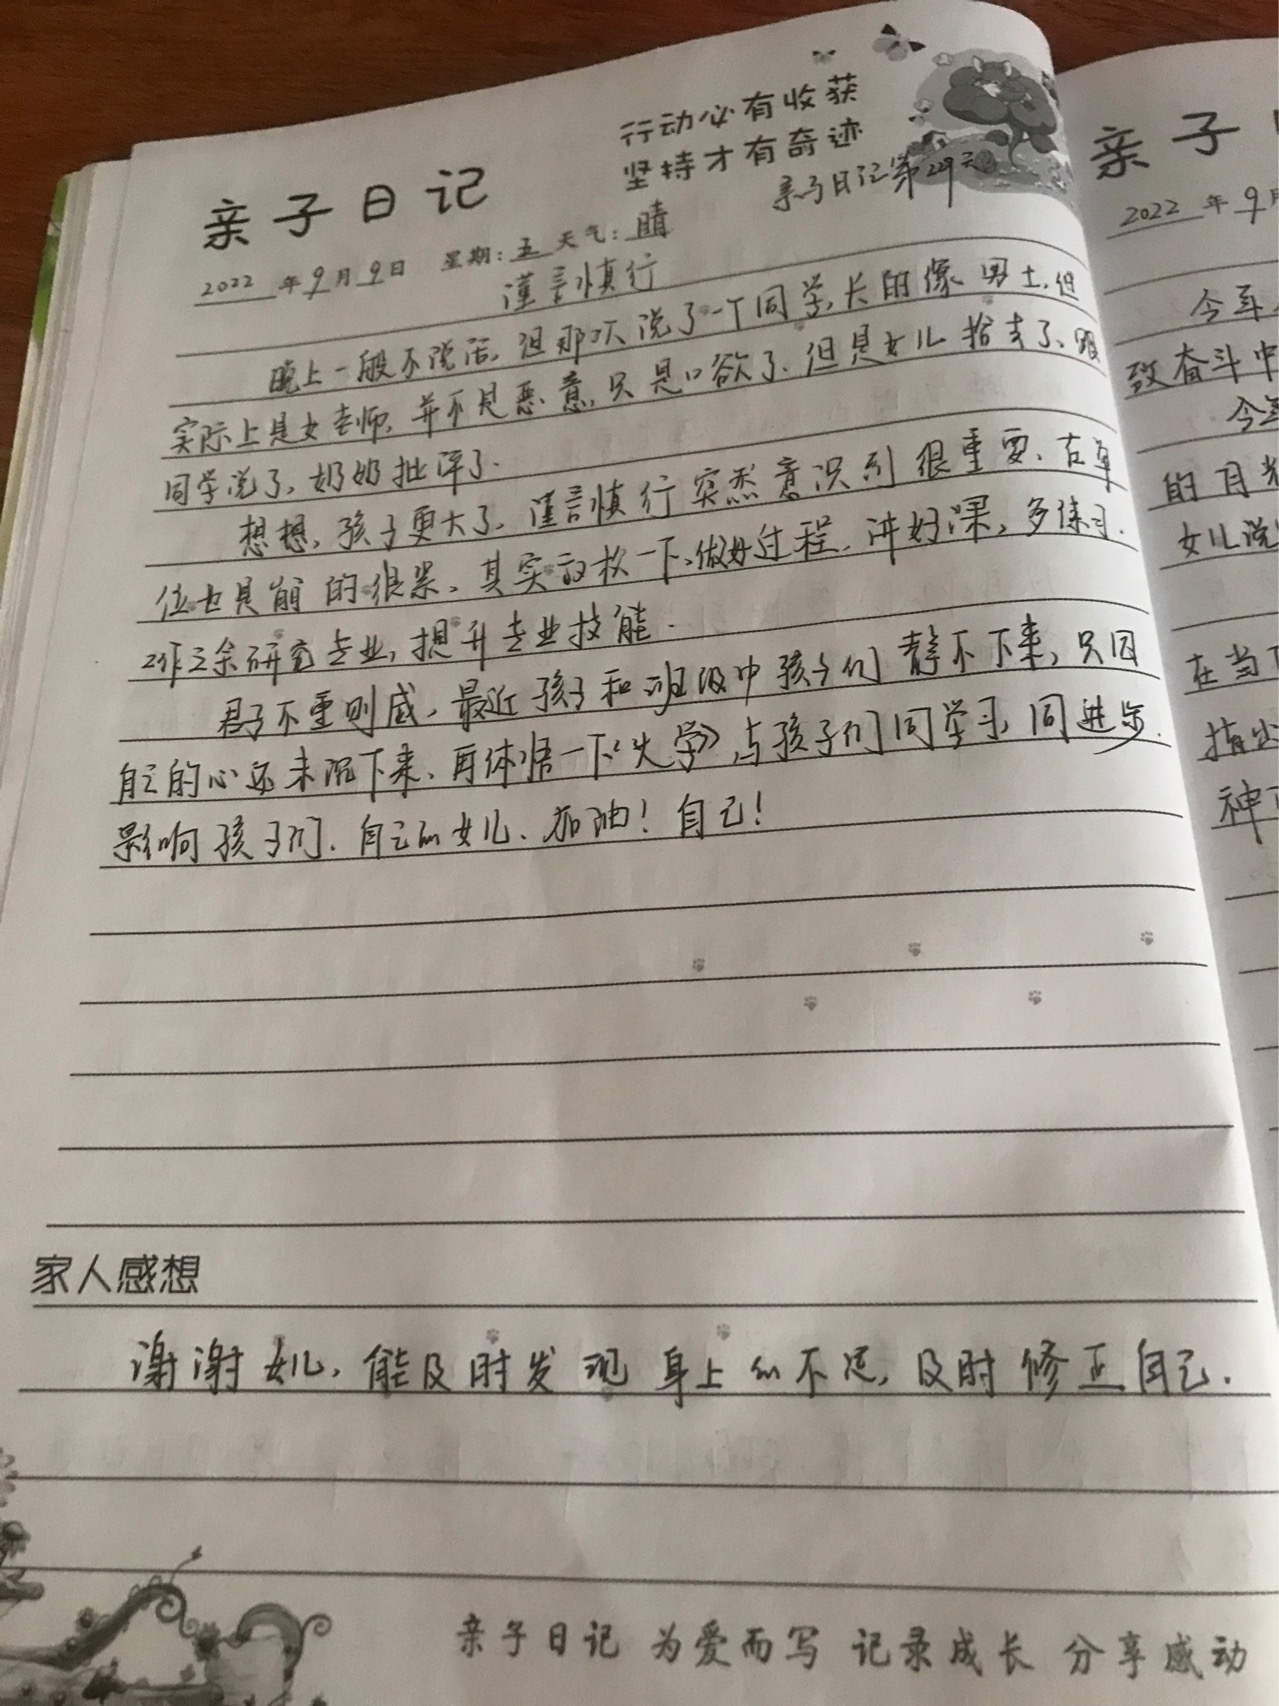 行动必有收获
坚持才有奇迹
亲子日记
亲子日记第229天
2022年9月9日 星期:五 天气:晴
谨言慎行
晚上一般不说话,但那次说了一个同学,长的像男士,但
实际上是女老师,并不是恶意,只是口欲了、但是女儿捎去了、跟
同学说了,奶奶批评了.
想想,孩子更大了、谨言慎行突然意识到很重要、在单
位也是崩的很紧、其实放松一下、做好过程、讲好课,多练习.
工作之余研究专业,提升专业技能.
君子不重则威,最近孩子和班级中孩子们静不下来,只因
自己的心还未沉下来、再体悟一下《大学》,与孩子们同学习,同进步.
影响孩子们.自己的女儿、加油!自己!
家人感想
谢谢女儿,能及时发现身上的不足,及时修正自己.
亲子日记 为爱而写 记录成长 分享感动
亲子
2022年9月
今年
致奋斗中
今年
的月光
女儿说
在当下
指出
神